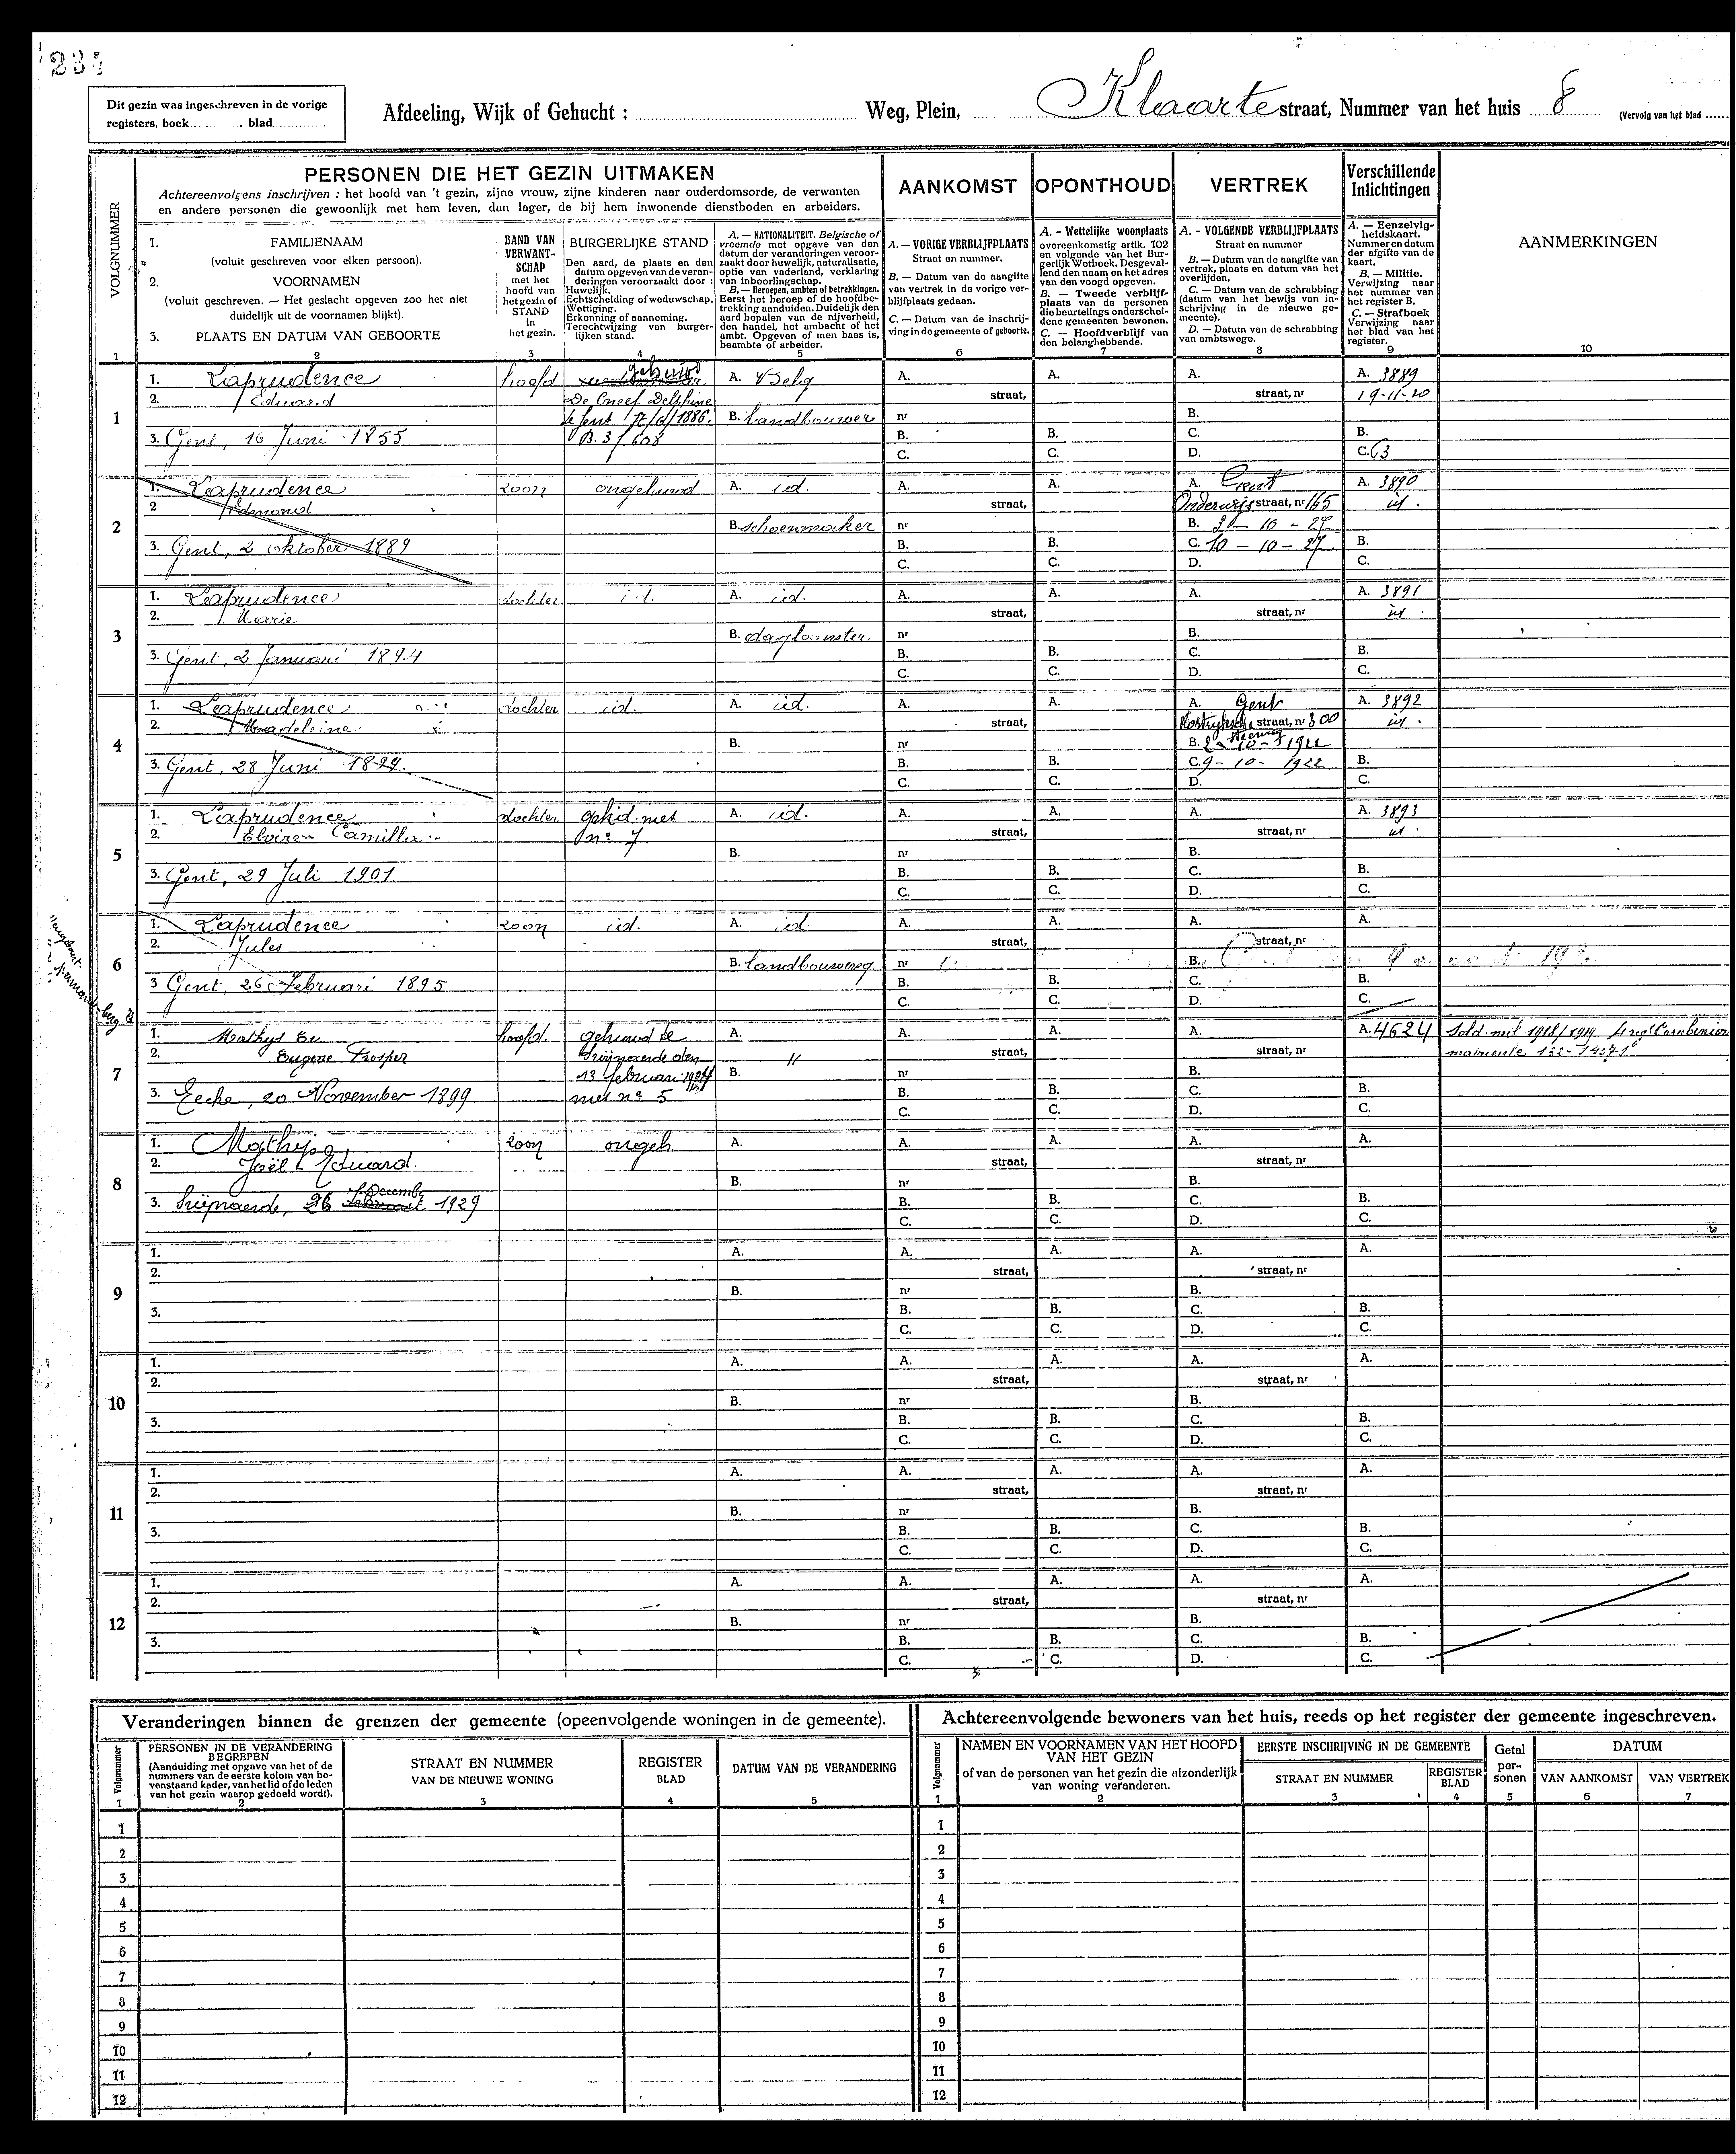 Dit gezin was ingeschreven in de vorige
registers, boek , blad
Afdeeling, Wijk of Gehucht : Weg, Plein, Klaarte straat, Nummer van het huis 8 (Vervolg van het blad
VOLGNUMMER
PERSONEN DIE HET GEZIN UITMAKEN
Achtereenvolgens inschrijven : het hoofd van 't gezin, zijne vrouw, zijne kinderen naar ouderdomsorde, de verwanten
en andere personen die gewoonlijk met hem leven, dan lager, de bij hem inwonende dienstboden en arbeiders.
1. FAMILIENAAM
(voluit geschreven voor elken persoon).
2. VOORNAMEN
(voluit geschreven. — Het geslacht opgeven zoo het niet
duidelijk uit de voornamen blijkt).
3. PLAATS EN DATUM VAN GEBOORTE
BAND VAN
VERWANT-
SCHAP
met het
hoofd van
het gezin of
STAND
in
het gezin.
BURGERLIJKE STAND
Den aard, de plaats en den
datum opgeven van de veran-
deringen veroorzaakt door :
Huwelijk.
Echtscheiding of weduwschap.
Wettiging.
Erkenning of aanneming.
Terechtwijzing van burger-
lijken stand.
A. — NATIONALITEIT. Belgische of
vreemde met opgave van den
datum der veranderingen veroor-
zaakt door huwelijk, naturalisatie,
optie van vaderland, verklaring
van inboorlingschap.
B. — Beroepen, ambten of betrekkingen.
Eerst het beroep of de hoofdbe-
trekking aanduiden. Duidelijk den
aard bepalen van de nijverheid,
den handel, het ambacht of het
ambt. Opgeven of men baas is,
beambte of arbeider.
AANKOMST
A. — VORIGE VERBLIJFPLAATS
Straat en nummer.
B. — Datum van de aangifte
van vertrek in de vorige ver-
blijfplaats gedaan.
C. — Datum van de inschrij-
ving in de gemeente of geboorte.
OPONTHOUD
A. - Wettelijke woonplaats
overeenkomstig artik. 102
en volgende van het Bur-
gerlijk Wetboek. Desgeval-
lend den naam en het adres
van den voogd opgeven.
B. — Tweede verblijf-
plaats van de personen
die beurtelings onderschei-
dene gemeenten bewonen.
C. — Hoofdverblijf van
den belanghebbende.
VERTREK
A. - VOLGENDE VERBLIJFPLAATS
Straat en nummer
B. — Datum van de aangifte van
vertrek, plaats en datum van het
overlijden.
C. — Datum van de schrabbing
(datum van het bewijs van in-
schrijving in de nieuwe ge-
meente).
D. — Datum van de schrabbing
van ambtswege.
Verschillende
Inlichtingen
A. — Eenzelvig-
heidskaart.
Nummer en datum
der afgifte van de
kaart.
B. — Militie.
Verwijzing naar
het nummer van
het register B.
C. — Strafboek
Verwijzing naar
het blad van het
register.
AANMERKINGEN
1 2 3 4 5 6 7 8 9 10
1
1. Laprudence hoofd gehuwd A. Belg A. A. A. A. 3889
2. Eduard De Cneef Delphine straat, straat, nr 19-11-20
te Gent B. landbouwer nr B.
3. Gent, 16 Juni 1855 B. 3/608 B. B. C. B.
C. C. D. C. 63
2
1. Laprudence zoon ongehuwd A. id. A. A. A. Gent A. 3890
2 Edmond straat, straat, nr id.
B. schoenmaker nr B.
3. Gent, 2 oktober 1889 B. B. C. 10 - 10 - 27. B.
C. C. D. C.
3
1. Laprudence dochter id. A. id. A. A. A. A. 3891
2. Marie straat, straat, nr id.
B. dagloonster nr B.
3. Gent, 2 Januari 1894 B. B. C. B.
C. C. D. C.
4
1. Laprudence dochter id. A. id. A. A. A. Gent A. 3892
2. Madeleine straat, Kortrijksche straat, nr 300 id.
steenweg
B. nr B. 2 - 10 - 1922
3. Gent, 28 Juni B. B. C. 9 - 10 - 1922 B.
C. C. D. C.
5
1. Laprudence dochter gehid. met A. id. A. A. A. A. 3893
2. Elvire Camilla n° 7 straat, straat, nr id.
B. nr B.
3. Gent, 29 Juli 1901. B. B. C. B.
C. C. D. C.
6
1. Laprudence zoon id. A. id. A. A. A. A.
2. Jules straat, straat, nr
B. nr B.
3 Gent, 26 Februari 1895 B. B. C. B.
C. C. D. C.
7
1. Mathys hoofd. gehuwd te A. A. A. A. A. 4624 Sold. mil 1918/1919
2. Eugene Prosper Swijnaerde den " straat, straat, nr matricule
13 februari B. nr B.
3. Eecke, 20 November 1899 met n° 5 B. B. C. B.
C. C. D. C.
8
1. Mathys zoon ongeh. A. A. A. A. A.
2. Joël Eduard. straat, straat, nr
B. nr B.
December
3. Swijnaerde, 26 Februari 1929 B. B. C. B.
C. C. D. C.
9
1. A. A. A. A. A.
2. straat, straat, nr
B. nr B.
3. B. B. C. B.
C. C. D. C.
10
1. A. A. A. A. A.
2. straat, straat, nr
B. nr B.
3. B. B. C. B.
C. C. D. C.
11
1. A. A. A. A. A.
2. straat, straat, nr
B. nr B.
3. B. B. C. B.
C. C. D. C.
12
1. A. A. A. A. A.
2. straat, straat, nr
B. nr B.
3. B. B. C. B.
C. C. D. C.
Veranderingen binnen de grenzen der gemeente (opeenvolgende woningen in de gemeente).
Volgnummer
PERSONEN IN DE VERANDERING
BEGREPEN
(Aanduiding met opgave van het of de
nummers van de eerste kolom van bo-
venstaand kader, van het lid of de leden
van het gezin waarop gedoeld wordt).
STRAAT EN NUMMER
VAN DE NIEUWE WONING
REGISTER
BLAD
DATUM VAN DE VERANDERING
1 2 3 4 5
1
2
3
4
5
6
7
8
9
10
11
12
Achtereenvolgende bewoners van het huis, reeds op het register der gemeente ingeschreven.
Volgnummer
NAMEN EN VOORNAMEN VAN HET HOOFD
VAN HET GEZIN
of van de personen van het gezin die afzonderlijk
van woning veranderen.
EERSTE INSCHRIJVING IN DE GEMEENTE
STRAAT EN NUMMER
REGISTER
BLAD
Getal
per-
sonen
DATUM
VAN AANKOMST
VAN VERTREK
1 2 3 4 5 6 7
1
2
3
4
5
6
7
8
9
10
11
12